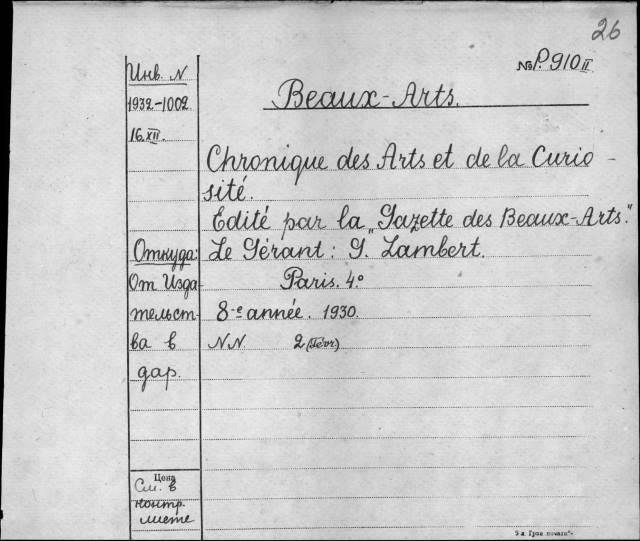 26
№ P. 910 II
Инв. N
1932-1002
16.XII.
Beaux-Arts.
Chronique des Arts et de la Curio-
sité.
Edité par la „Gazette des Beaux-Arts."
Le Gérant: G. Lambert.
Paris. 4.º
8-e année. 1930.
NN 2 (févr)
Откуда:
От Изда
тельст-
ва в
дар.
Цена
См. в
контр.
листе